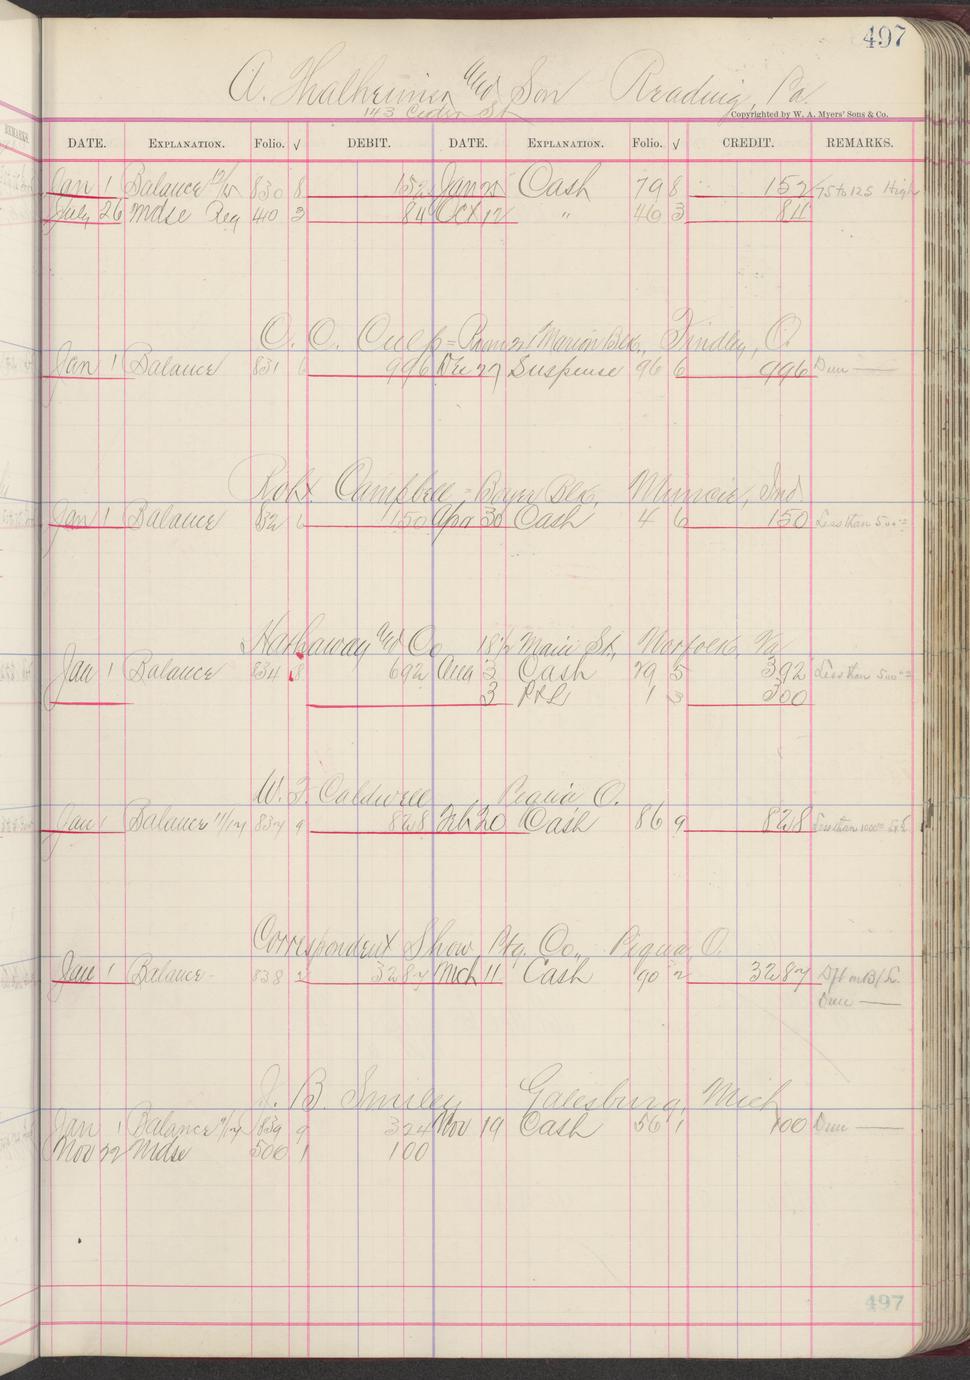 497
A. Thalheimer and Son Reading, Pa.
143 Cedar St
Copyrighted by W. A. Myers' Sons & Co.
DATE. EXPLANATION. Folio. √ DEBIT. DATE. EXPLANATION. Folio. √ CREDIT. REMARKS.
Jan 1 Balance 830 8 152 Jan 25 Cash 79 8 152 75 to 125 High
July 26 Mdse Reg 40 3 84 Oct 12 " 46 3 84
C. C. Culp = Room 21 Marion Blk., Findley, O.
Jan 1 Balance 831 6 996 Dec 27 Suspense 96 6 996 Dun —
Robt. Campbell = Boyer Blk, Muncie, Ind.
Jan 1 Balance 832 6 150 Apr 30 Cash 4 6 150 Less than 500
Hathaway and Co 181/2 Main St., Norfolk, Va
Jan 1 Balance 834 8 692 Aug 3 Cash 29 5 392 Less than 500
3 P&L 1 3 300
W. F. Caldwell Piqua O.
Jan 1 Balance 837 9 828 Feb 20 Cash 86 9 828 Less than 1000
Correspondent Show Ptg. Co., Piqua, O.
Jan 1 Balance 838 2 3287 Mch 11 Cash 90 2 3287 Dft on B/L.
Dun —
J. B. Smiley Galesburg, Mich
Jan 1 Balance 839 9 324 Nov 19 Cash 56 1 100 Dun —
Nov 22 Mdse 500 1 100
497